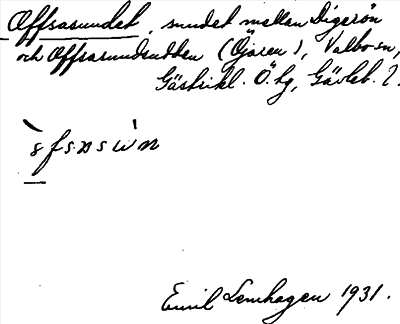 Offsasundet, sundet mellan Digerön
och Offsasundudden (Öjaren), Valbo sn,
Gästrikl. Ö. hg, Gävleb. l.
Emil Lenhagen 1931.